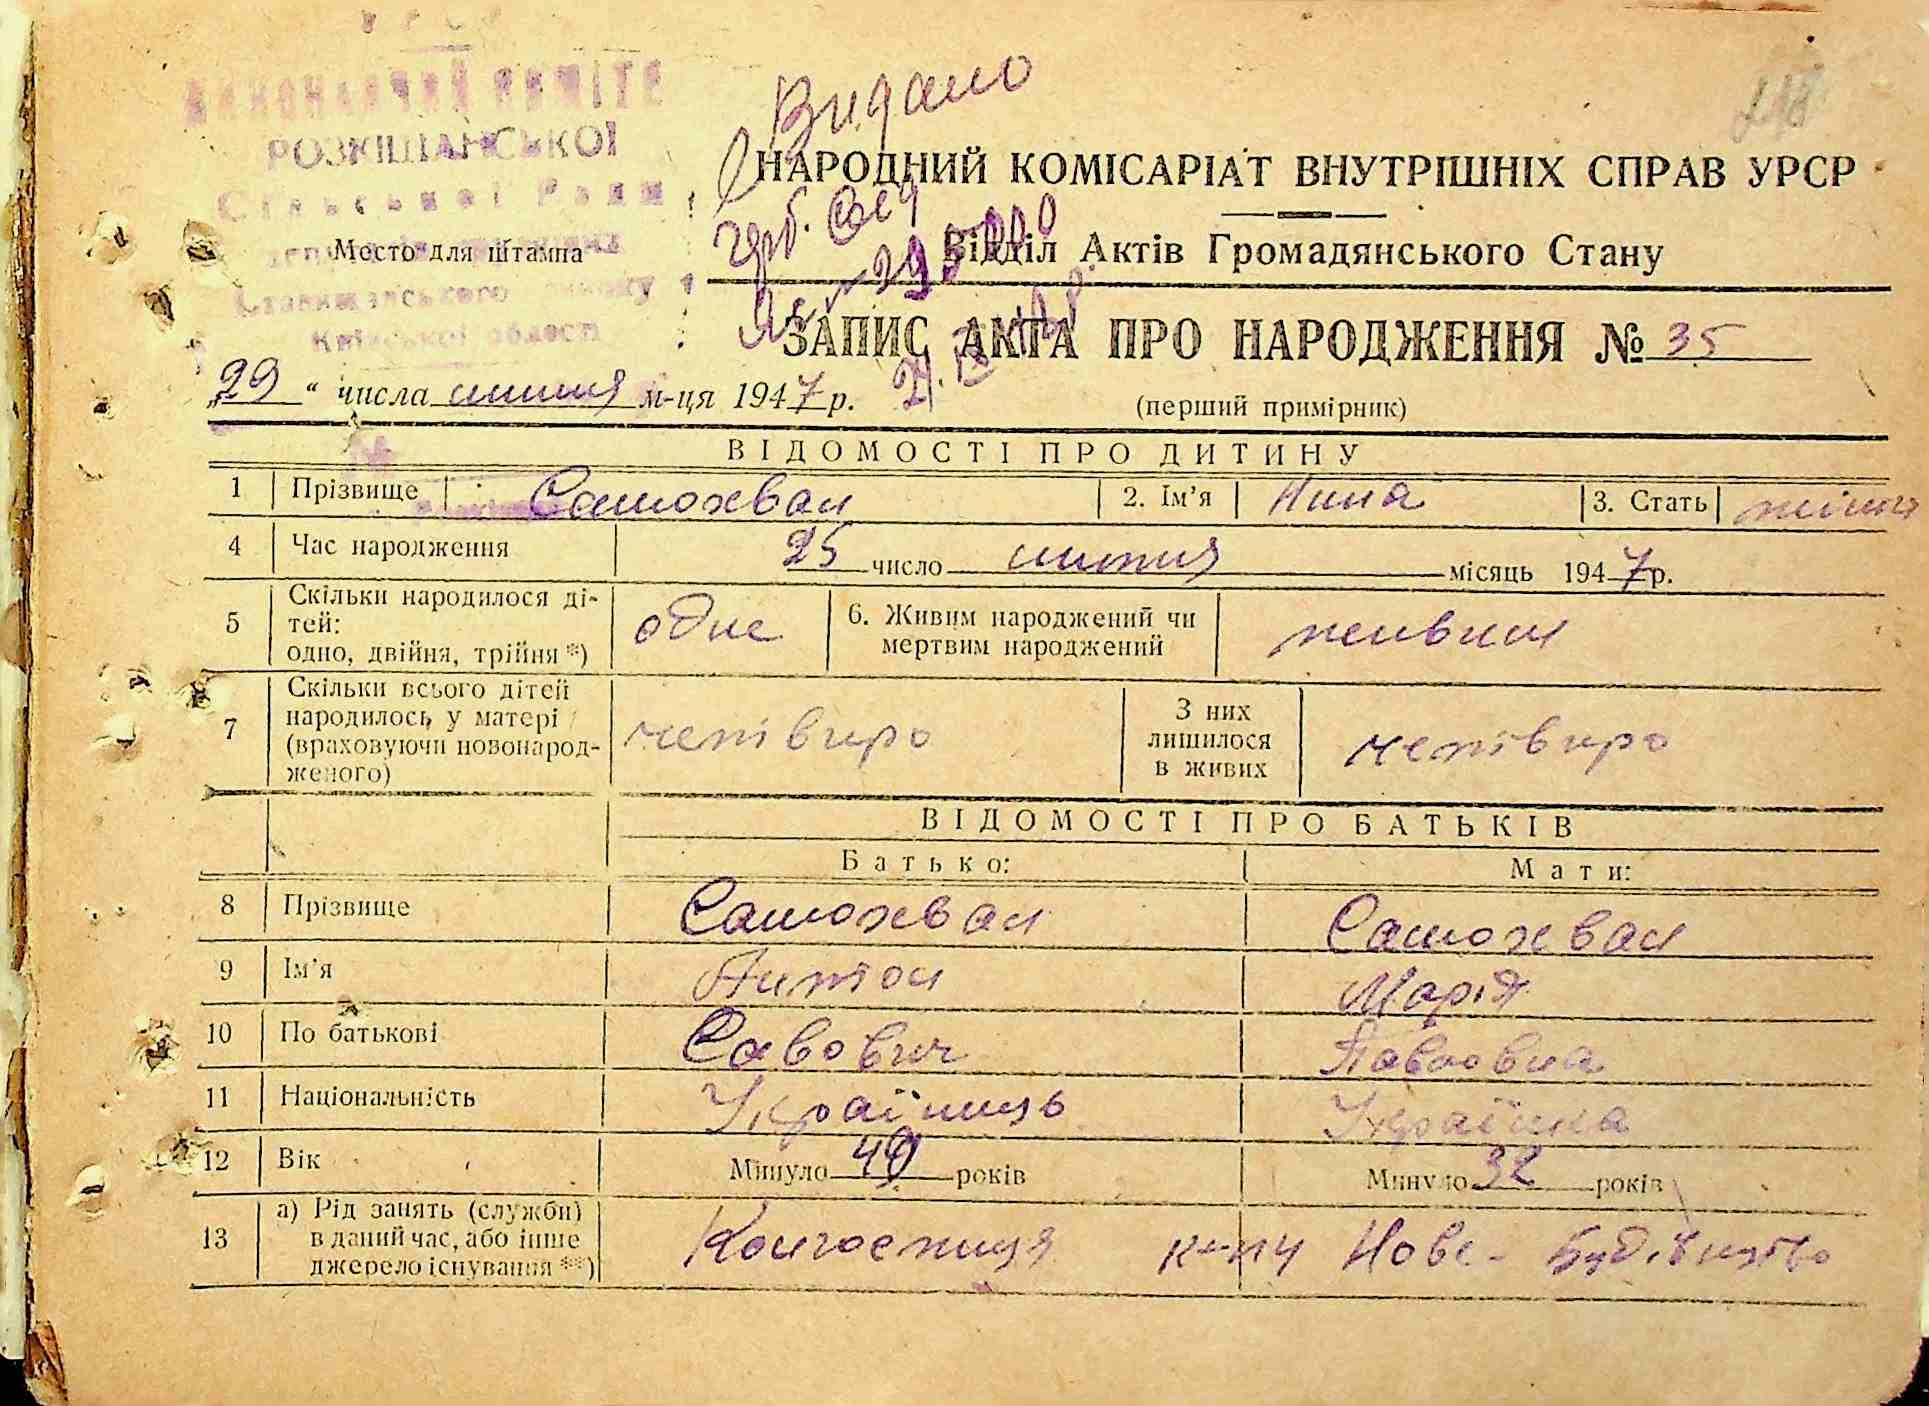 УРСР
ВИКОНАВЧИЙ КОМІТЕТ
РОЗКІШАНСЬКОЇ
Сільської Ради
Место для штампа
Ставищанського району
Київської області
Видано
НАРОДНИЙ КОМІСАРІАТ ВНУТРІШНІХ СПРАВ УРСР
Відділ Актів Громадянського Стану
ЗАПИС АКТА ПРО НАРОДЖЕННЯ № 35
„29“ числа липня м-ця 1947 р.
(перший примірник)
ВІДОМОСТІ ПРО ДИТИНУ
1 Прізвище Самохвал 2. Ім’я Нина 3. Стать жіноча
4 Час народження 25 число липня місяць 1947 р.
5 Скільки народилося ді-
тей:
одно, двійня, трійня *) одне 6. Живим народжений чи
мертвим народжений живим
7 Скільки всього дітей
народилось у матері
(враховуючи новонарод-
женого) четверо З них
лишилося
в живих четверо
ВІДОМОСТІ ПРО БАТЬКІВ
Батько: Мати:
8 Прізвище Самохвал Самохвал
9 Ім’я Антон Марія
10 По батькові Савович Павловна
11 Національність Українець Українка
12 Вік Минуло 49 років Минуло 32 років
13 а) Рід занять (служби)
в даний час, або інше
джерело існування **) Колгоспниця к-пу Нове- Будівництво